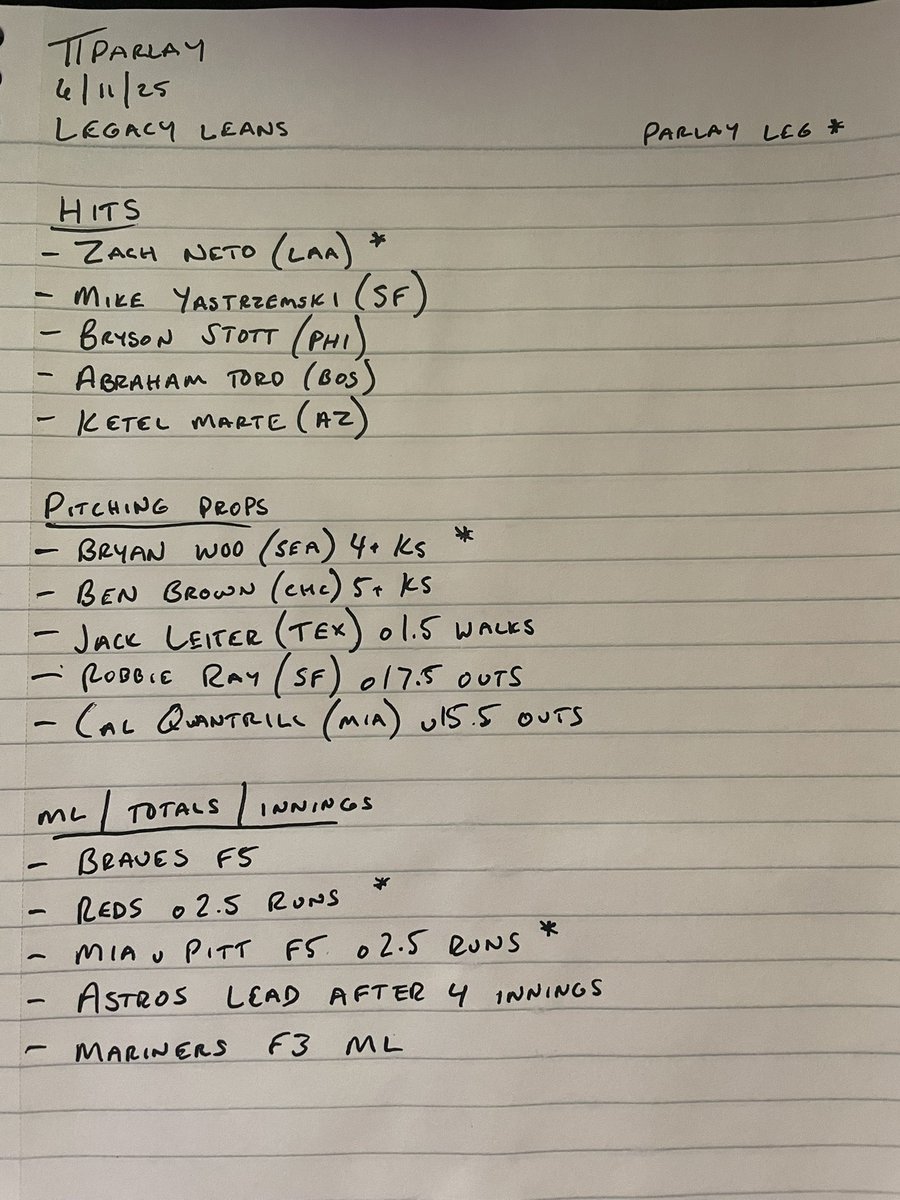 πPARLAY
6/11/25
LEGACY LEANS
PARLAY LEG *
HITS
- ZACH NETO (LAA) *
- MIKE YASTRZEMSKI (SF)
- BRYSON STOTT (PHI)
- ABRAHAM TORO (BOS)
- KETEL MARTE (AZ)
PITCHING PROPS
- BRYAN WOO (SEA) 4+ KS *
- BEN BROWN (CHC) 5+ KS
- JACK LEITER (TEX) o1.5 WALKS
- ROBBIE RAY (SF) o17.5 OUTS
- CAL QUANTRILL (MIA) u15.5 OUTS
ML / TOTALS / INNINGS
- BRAVES F5
- REDS o2.5 RUNS *
- MIA v PITT F5 o2.5 RUNS *
- ASTROS LEAD AFTER 4 INNINGS
- MARINERS F3 ML